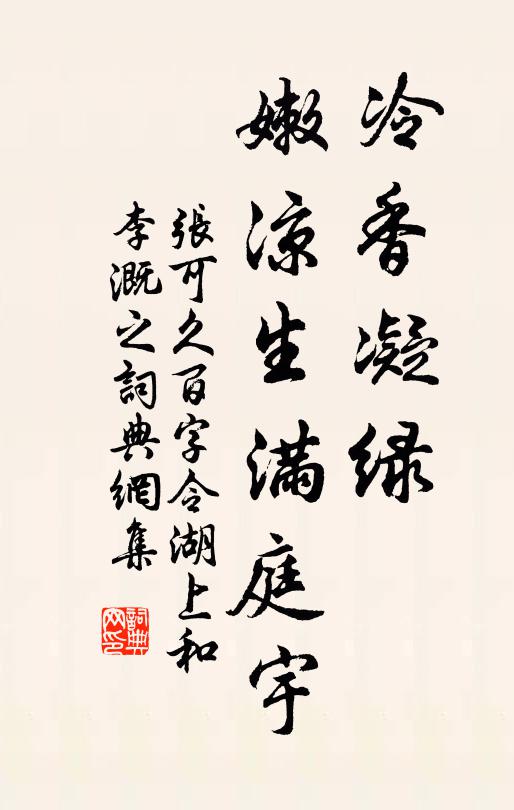 冷香凝绿
嫩凉生满庭宇
張可久百字令湖上和
李溉之詞典網集
詞典网印